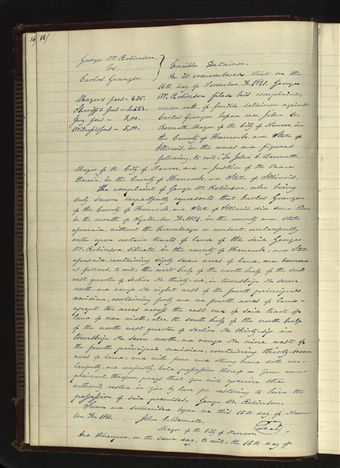 George W. Robinson,
vs
Carlos Granger
Mayor's fees - 4.25.
Sheriff's fees - 2.62½.
Jury fees - 3.00.
Witness fees - 3.00.
Forcible Detainer.
Be it remembered that on the
16th day of November A.D. 1841. George
W. Robinson filed his complaint,
under oath, of forcible detainer against
Carlos Granger before me John C.
Bennett, Mayor of the City of Nauvoo in
the County of Hancock, and State of
Illinois, in the words and figures
following, to wit: To John C. Bennett,
Mayor of the City of Nauvoo, and a justice of the Peace
therein, in the County of Hancock, and State of Illinois.
The complaint of George W. Robinson, who being
duly sworn respectfully represents that Carlos Granger
of the County of Hancock, and State of Illinois did some time
in the month of September A.D. 1841, in the county and state
aforesaid, without the knowledge or consent, unlawfully
enter upon certain tracts of land of the said George
W. Robinson, situate in the county of Hancock, and State
aforesaid, containing sixty seven acres of land, and bounded
as follows, to wit: the west half of the south half of the south
west quarter of section No. thirty-one, in township No. seven
north, and range No. eight west of the fourth principal
meridian, containing forty and one fourth acres of land -
except ten acres off the east end of said tract of
land of now made; also the south half of the north half
of the north west quarter of section No. thirty-six in
township No. seven north, and range No. nine west of
the fourth principal meridian, containing thirty-seven
acres of land; and with force and strong hand doth un-
lawfully and unjustly hold possession thereof - Your com-
plainant therefore prays that you will exercise the
authority vested in you by law for restoring to him the
possession of said premises. George W. Robinson.
Sworn and subscribed before me this 16th day of Novem-
ber, A.D. 1841. John C. Bennett,
Mayor of the City of Nauvoo.
And thereupon, on the same day, to wit, the 16th day of